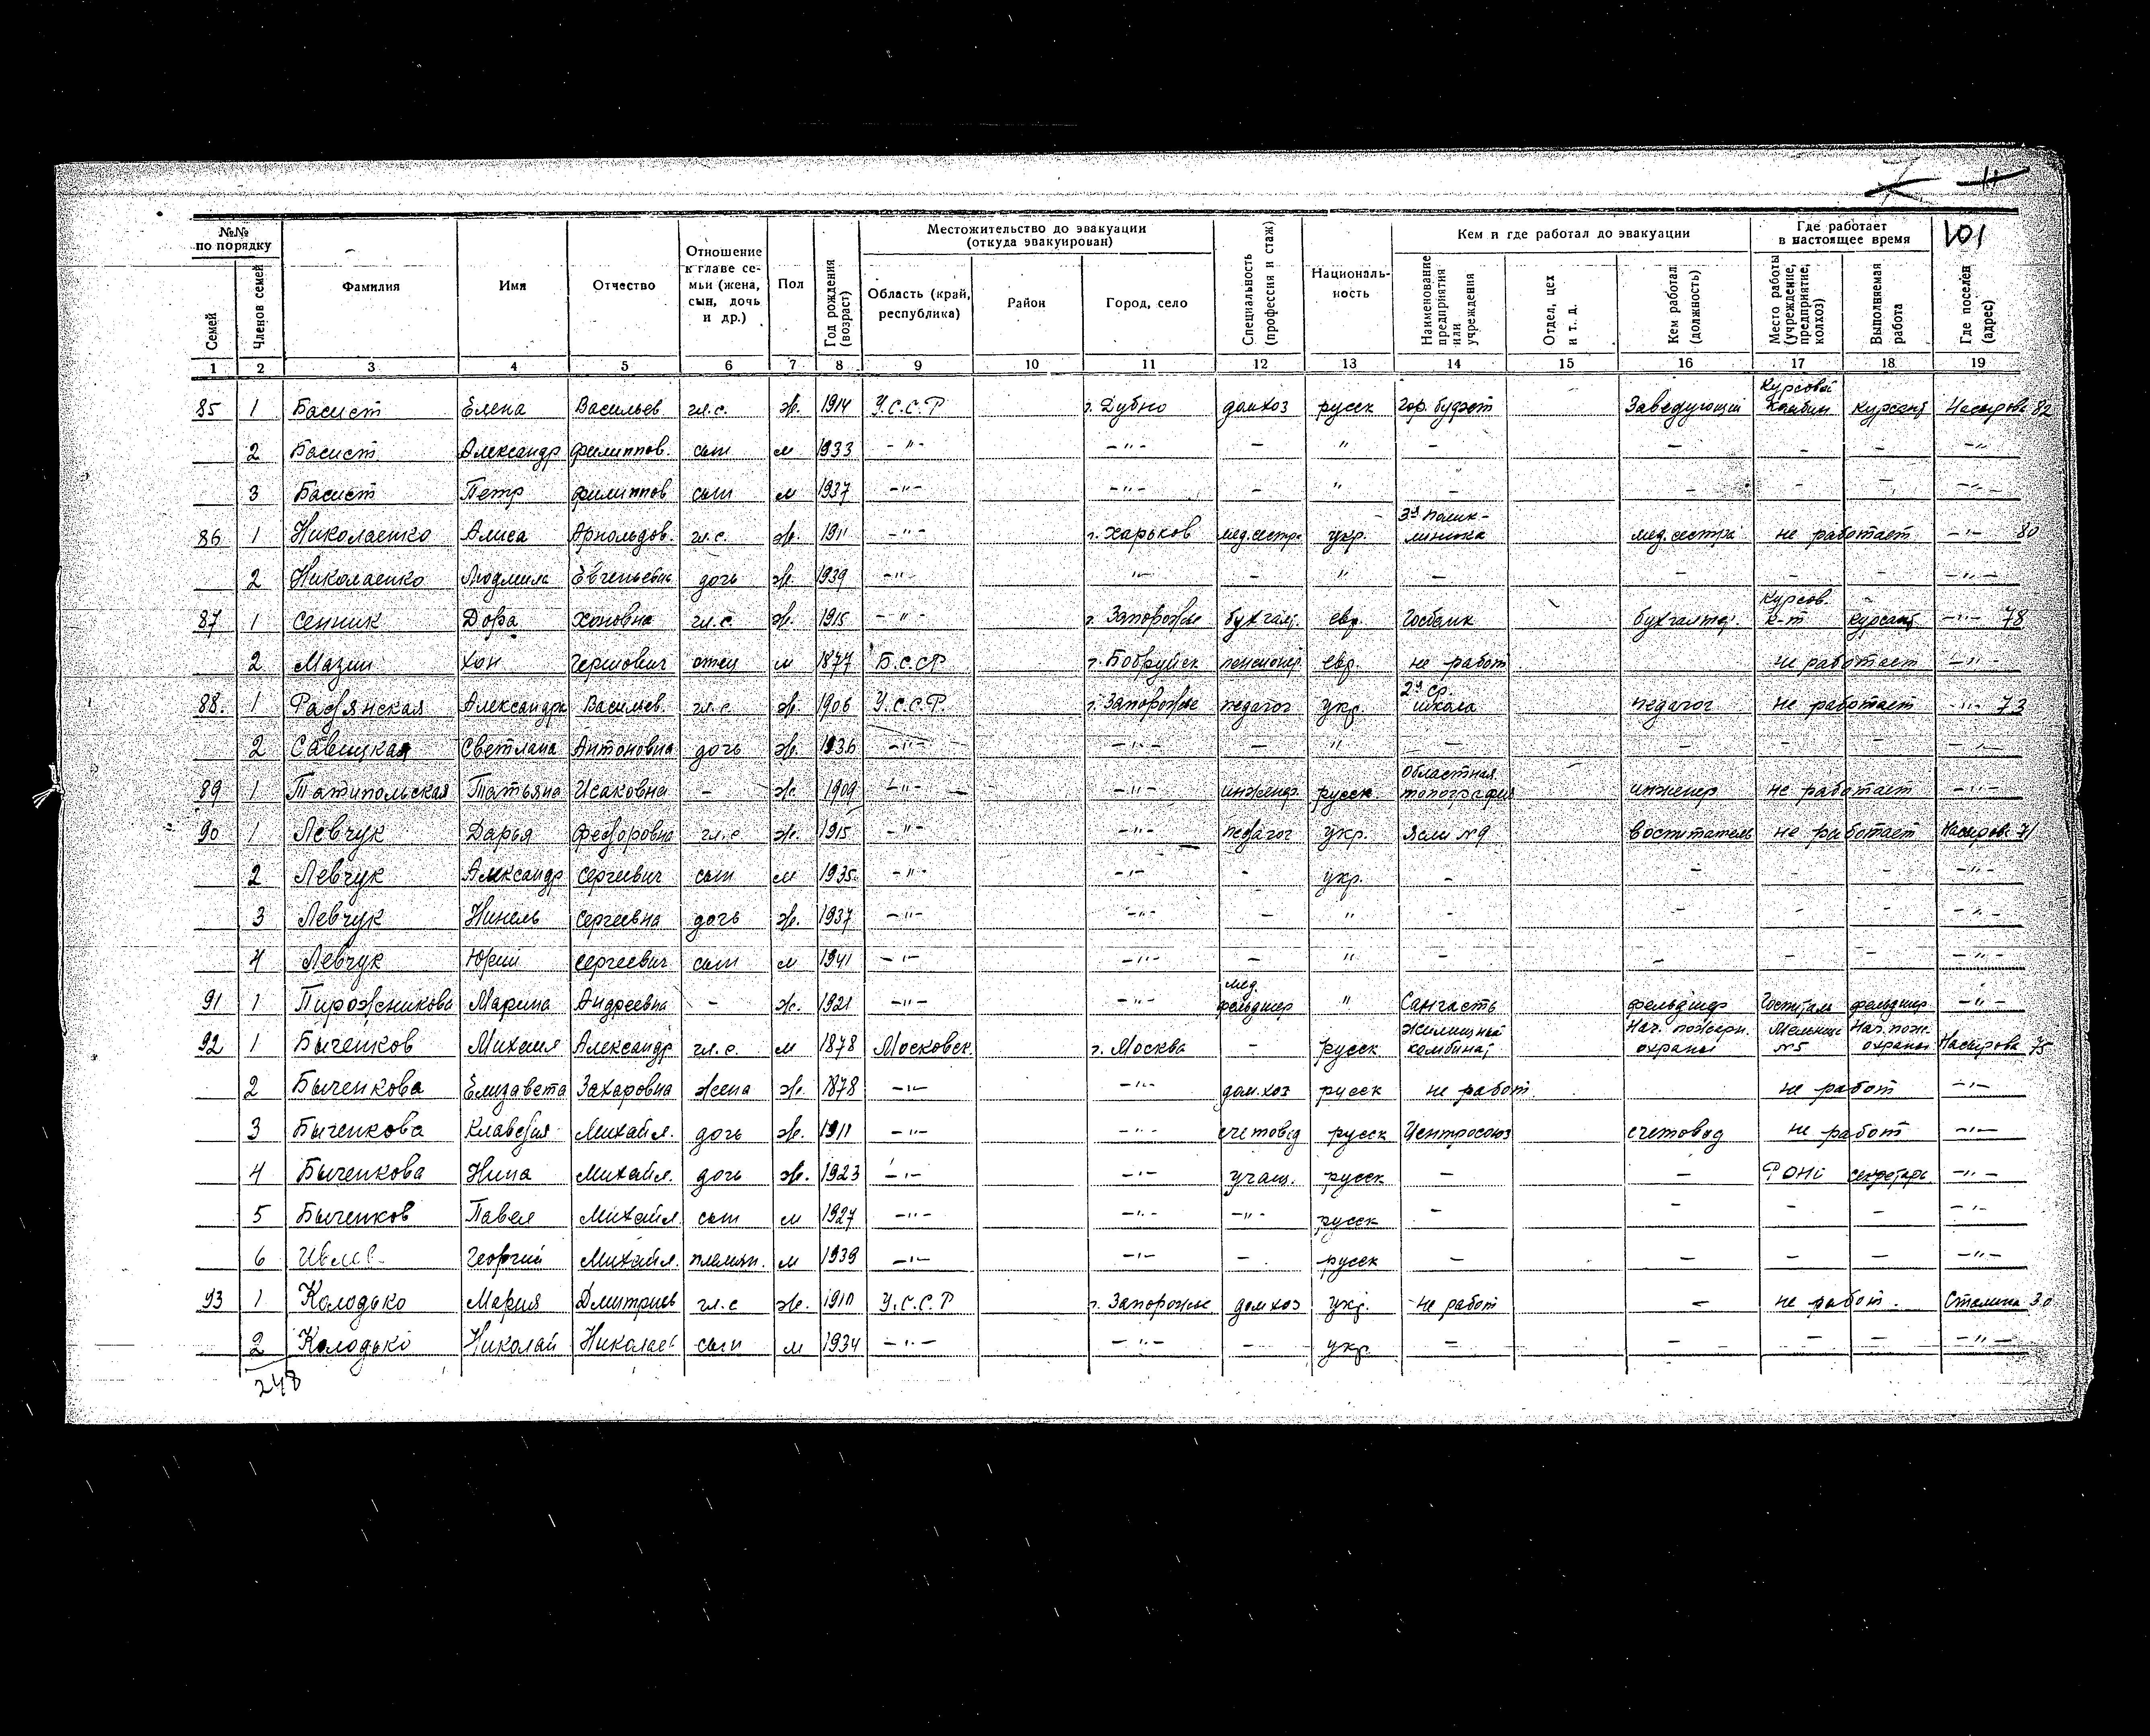 7 11
№№ по порядку | Фамилия | Имя | Отчество | Отношение к главе семьи (жена, сын, дочь и др.) | Пол | Год рождения (возраст) | Местожительство до эвакуации (откуда эвакуирован) | Специальность (профессия и стаж) | Националь-ность | Кем и где работал до эвакуации | Где работает в настоящее время | 101
Семей | Членов семей | Область (край, республика) | Район | Город, село | Наименование предприятия или учреждения | Отдел, цех и т. д. | Кем работал (должность) | Место работы (учреждение, предприятие, колхоз) | Выполняемая работа | Где поселен (адрес)
1 2 3 4 5 6 7 8 9 10 11 12 13 14 15 16 17 18 19
85 1 Басист Елена Васильев. гл.с. ж. 1914 У.С.С.Р г. Дубно домхоз русск Гор. бюджет Заведующий Курсовой Комбин курсант Насырова 82
2 Басист Александр Филиппов. сын м 1933 -"- -"- - " - - - - -"-
3 Басист Петр Филиппов сын м 1937 -"- -"- - " - - - - -"-
86 1 Николаенко Алиса Арнольдов. гл.с. ж. 1911 -"- г. Харьков мед.сестра укр. 3я Полик-линика мед.сестра не работает -"- 80
2 Николаенко Людмила Евгеньевна дочь ж. 1939 -"- "- - " - - - - -"-
87 1 Сенник Дора Хоновна гл.с. ж. 1915 -"- г. Запорожье бухгалт. евр. Госбанк бухгалтер. Курсов. к-т курсант -"- 78
2 Мазин Хон Гершович отец м 1877 Б.С.СР г. Бобруйск пенсионер. евр. не работ не работает -"-
88. 1 Радянская Александра Васильев. гл.с. ж. 1906 У.С.С.Р. г. Запорожье педагог укр. 2я ср. школа педагог не работает -"- 73
2 Савицкая Светлана Антоновна дочь ж. 1936 -"- -"- - " - - - - -"-
89 1 Татипольская Татьяна Исаковна - ж 1909 -"- -"- инженер. русск. Областная типография инженер не работает -"-
90 1 Левчук Дарья Федоровна гл.с ж. 1915 -"- -"- педагог укр. Ясли №9 воспитатель не работает Насырова 71
2 Левчук Александр Сергеевич сын м 1935 -"- -"- - укр. - - - - -"-
3 Левчук Нинель Сергеевна дочь ж. 1937 -"- -"- - " - - - - -"-
4 Левчук Юрий Сергеевич сын м 1941 -"- -"- - " - - - - -"-
91 1 Пирожникова Марина Андреевна - ж. 1921 -"- -"- мед. фельдшер " Санчасть фельдшер Госпиталь фельдшер -"-
92 1 Быченков Михаил Александр гл.с. м 1878 Московск. г. Москва - русск Жилищный комбинат Нач. пожарн. охраны Мельниц №5 Нач. пож. охраны Насырова 75
2 Быченкова Елизавета Захаровна жена ж. 1878 -"- -"- дом.хоз русск не работ. не работ -"-
3 Быченкова Клавдия Михайл. дочь ж. 1911 -"- -"- счетовод русск Центросоюз счетовод не работ -"-
4 Быченкова Нина Михайл. дочь ж. 1923 -"- -"- учащ. русск - - РОНО секретарь -"-
5 Быченков Павел Михайл. сын м 1927 -"- -"- -"- русск - - - - -"-
6 Ивлев Георгий Михайл. племян. м 1939 -"- -"- - русск - - - - -"-
93 1 Колодько Мария Дмитриев гл.с ж. 1910 У.С.С.Р г. Запорожье домхоз укр. не работ - не работ. Сталина 30
2 Колодько Николай Николаев сын м 1934 -"- -"- - укр - - - - -"-
248